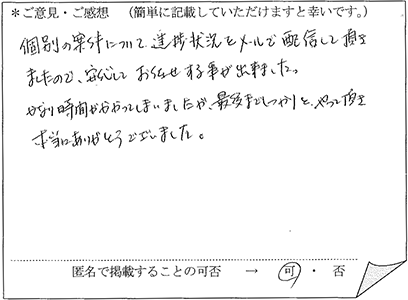 ＊ご意見・ご感想　（簡単に記載していただけますと幸いです。）
個別の案件について、進捗状況をメールで配信して頂き
ましたので、安心してお任せする事が出来ました。
かなり時間がかかってしまいましたが、最後までしっかりと、やって頂き
本当にありがとうございました。
匿名で掲載することの可否　→　可　・　否